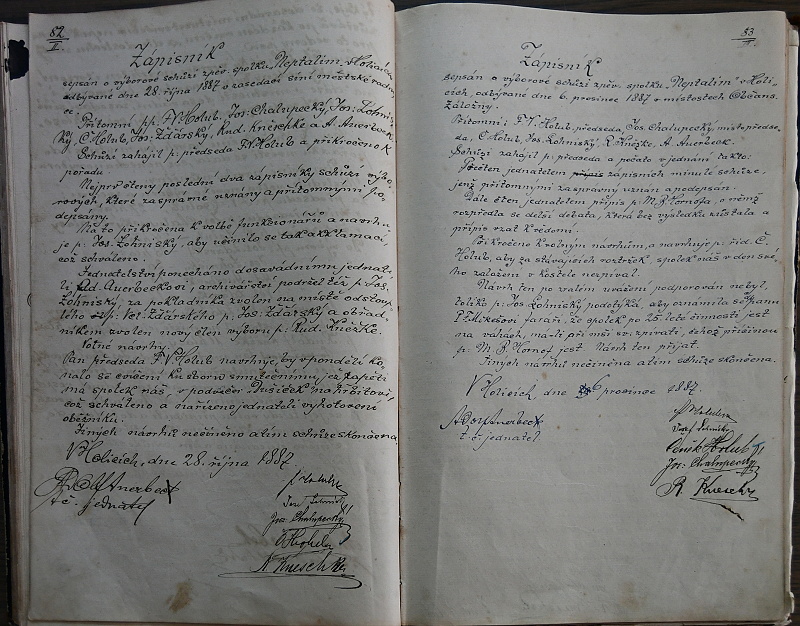 82
II.
Zápisník
sepsán o výborové schůzi zpěv. spolku „Neptalim" v Holicích
odbývané dne 28. října 1887 o zasedací síni městské rad-
nice.
Přítomni pp. F. V. Holub, Jos: Chalupecký, Jos: Lohni-
ský, Č. Holub, Jos: Žďárský, Rud. Kneschke a A. Auerbeck.
Schůzi zahájil p: předseda F. V. Holub a přikročeno k
pořadu.
Nejprv čteny poslední dva zápisníky schůzí výbo-
rových, které za správné uznány a přítomnými po-
depsány.
Na to přikročeno k volbě funkcionářů a navrhu-
je p: Jos. Lohniský, aby učinilo se tak akklamací,
což schváleno.
Jednatelství ponecháno dosavádnímu jednate-
li Ad. Auerbeckovi, archivářství podržel též p: Jos.
Lohniský, za pokladníka zvolen na místě odstoup-
lého p: Žďárského p: Jos: Žďárský a ořad-
níkem zvolen nový člen výboru p: Rud. Knežke.
Volné návrhy.
Pan předseda F. V. Holub navrhuje, by v pondělí ko-
nalo se cvičení ku sboru smutečnímu, jež zapěti
má spolek náš, v podvečer Dušiček na hřbitově,
což schváleno a nařízeno jednateli vyhotovení
oběžníku.
Jiných návrhů nečiněno a tím schůze skončena.
V Holicích, dne 28. října 1887.
Ad. Auerbeck
t. č. jednatel
Josef Lohniský
Jos: Chalupecký
Č Holub
R. Kneschke
83
II.
Zápisník
sepsán o výborové schůzi zpěv. spolku „Neptalim" v Holi-
cích, odbývané dne 6. prosince 1887 v místostech Občans.
Záložny.
Přítomni: F. V. Holub předseda, Jos. Chalupecký, místopředse-
da, Č. Holub, Jos. Lohniský, R. Knežke, A. Auerbeck.
Schůzi zahájil p: předseda a počato v jednání takto:
Počten jednatelem zápisník minulé schůze,
jenž přítomnými za správný uznán a podepsán.
Dále čten jednatelem přípis p: M. B. Hornofa, o němž
rozpředla se delší debata, která bez výsledku zůstala a
přípis vzat k vědomí.
Přikročeno k volným návrhům, a navrhuje p: řid. Č.
Holub, aby za stávajících roztržek, spolek náš v den své-
ho založení v kostele nezpíval.
Návrh ten po zralém uvážení podporován nebyl,
toliko p: Jos. Lohniský podotýká, aby oznámila se panu
P. Mikešovi faráři, že spolek po 25 leté činnosti jest
na váhách, má-li při mši sv. zpívati, čehož příčinou
p: M. B. Hornof jest. Návrh ten přijat.
Jiných návrhů nečiněno a tím schůze skončena.
V Holicích, dne 6 prosince 1887.
Adolf Auerbeck
t. č. jednatel
Josef Lohniský
Čeněk Holub
Jos: Chalupecký
R. Kneschke